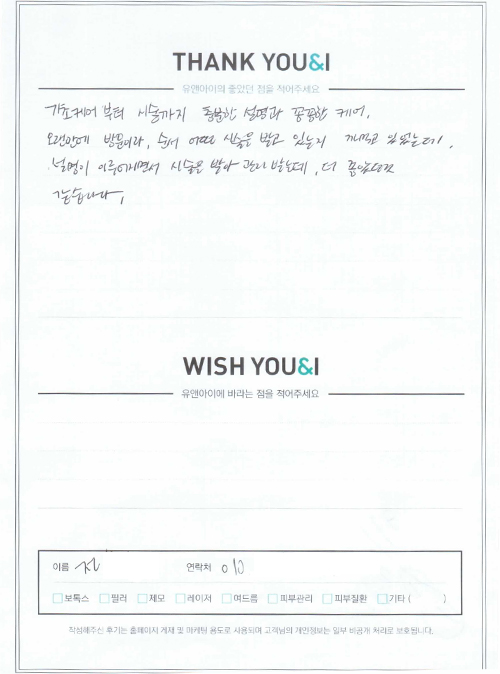 THANK YOU&I
유앤아이의 좋았던 점을 적어주세요
기초케어 부터 시술까지 충분한 설명과 꼼꼼한 케어,
오랜만에 방문이라, 순서 어떤 시술을 받고 있는지 까먹고 있었는데,
설명이 이루어지면서 시술을 받아 관리 받는데, 더 좋았던것
같습니다.
WISH YOU&I
유앤아이에 바라는 점을 적어주세요
이름 연락처 010
보톡스 필러 제모 레이저 여드름 피부관리 피부질환 기타 ( )
작성해주신 후기는 홈페이지 게재 및 마케팅 용도로 사용되며 고객님의 개인정보는 일부 비공개 처리로 보호됩니다.